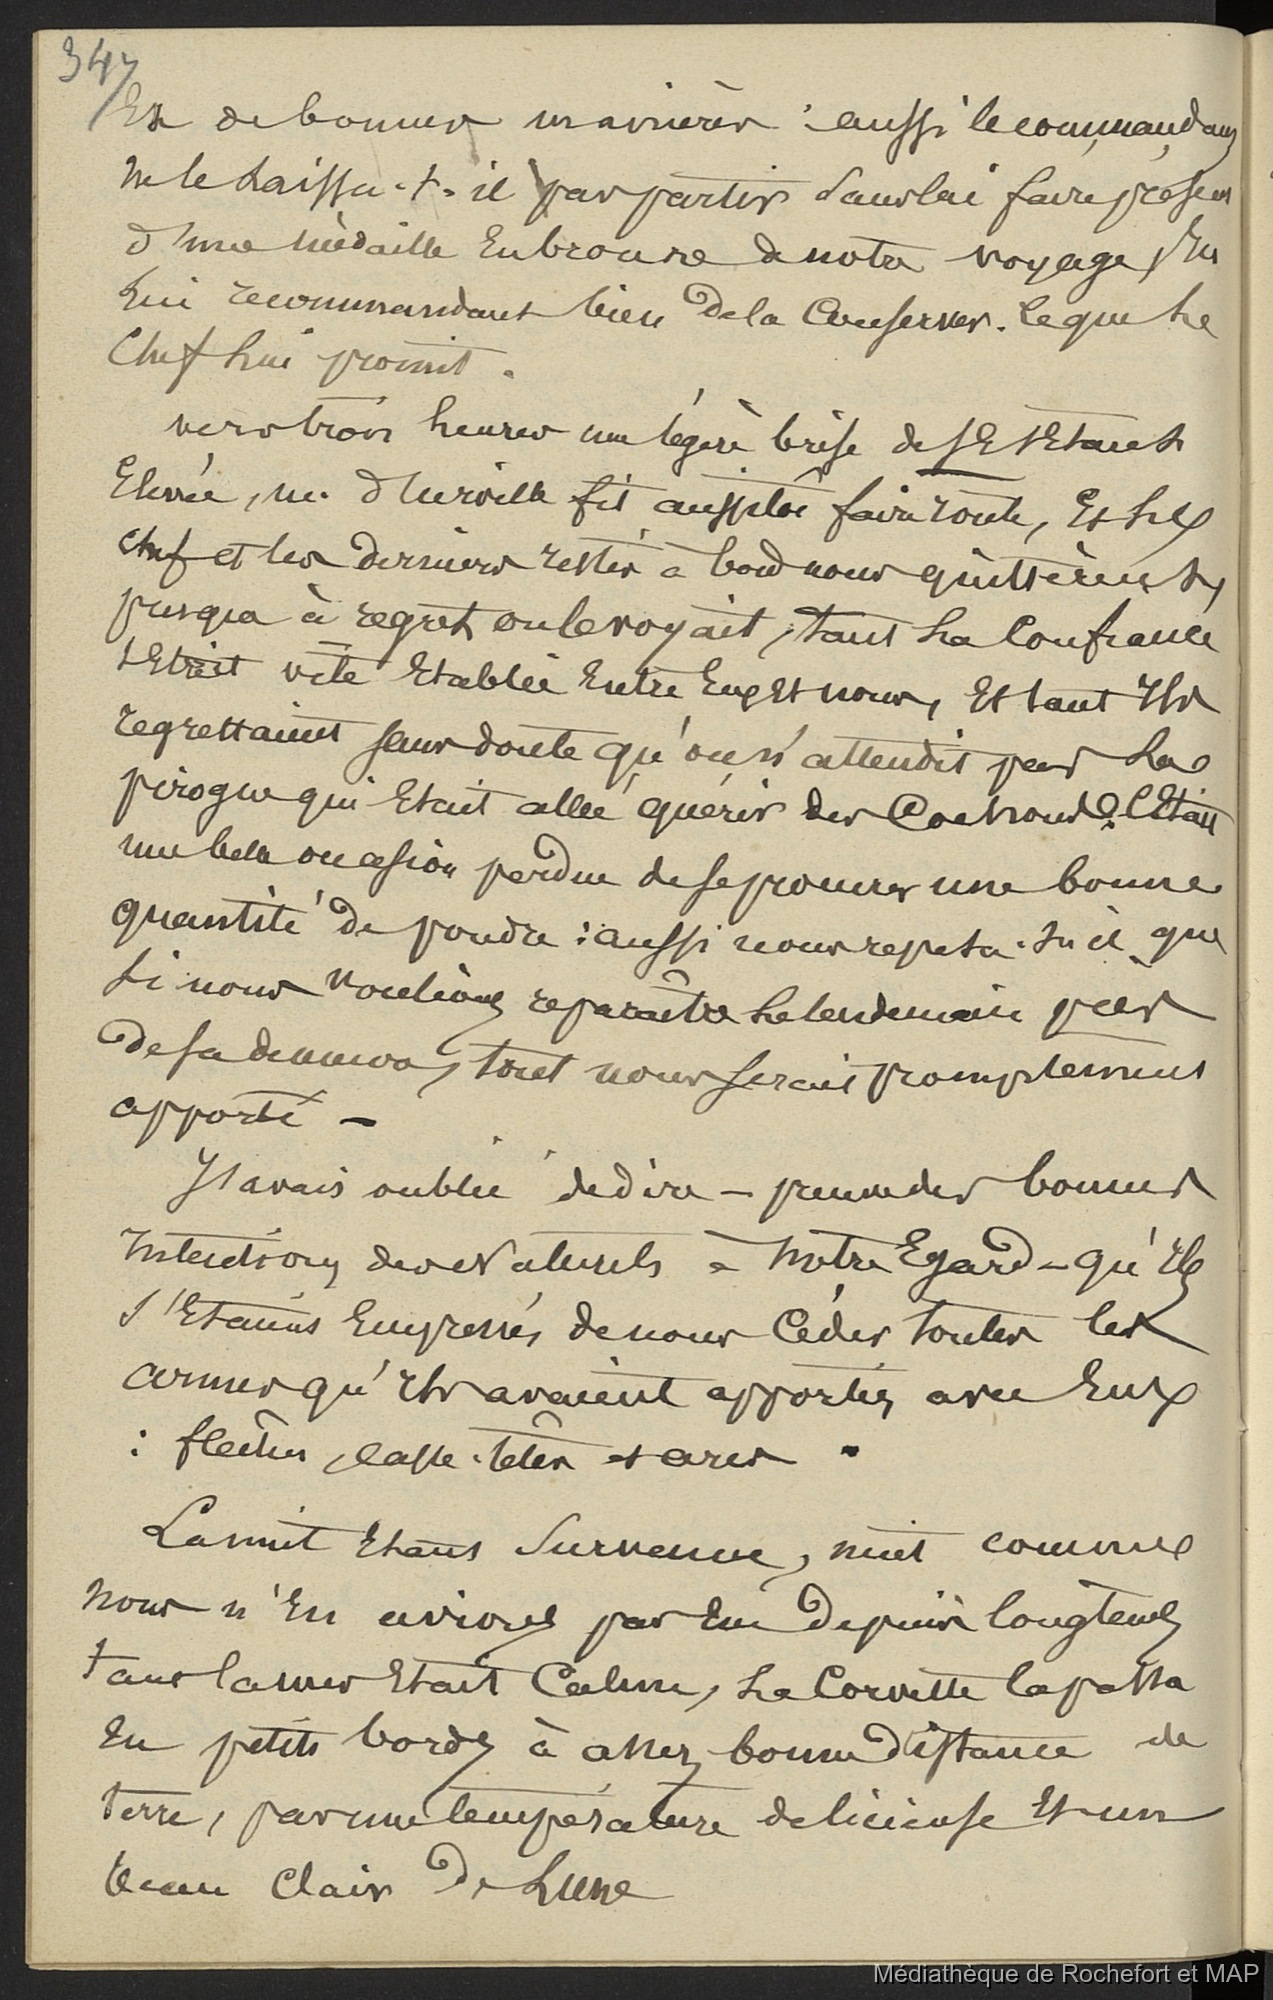 347
Et de bonnes manières : aussi le commandant
ne le Laissa-t-il pas partir Sans lui faire présent
d'une médaille En bronze de notre voyage, En
Lui recommandant bien De la Conserver. Ce que Le
Chef Lui promit.
vers trois heures une légère brise de S E S'Etant
Elevée, m. d'Urville fit aussitôt faire route, Et Le
chef et les Derniers restés à bord nous quittèrent,
presque à regret on le voyait, tant La Confiance
S'Etait vite Etablie Entre Eux Et nous, Et tant Ils
regrettaient sans doute qu'on n'attendit pas La
pirogue qui Etait allée quérir des Cochons. C'Etait
une belle occasion perdue de se procurer une bonne
quantité De poudre : aussi nous repeta-t-il que
Si nous voulions reparaître Le lendemain près
De sa demeure, tout nous serait promptement
apporté -
J'avais oublié de dire - preuve des bonnes
Intentions des Naturels à Notre Egard - qu'Ils
S'Etaient Empressés de nous Céder toutes les
armes qu'Ils avaient apportées avec Eux
: flèches, casse-têtes et arcs.
La nuit Etant Survenue, nuit comme
Nous n'En avions pas Eue Depuis longtemps
tant la mer Etait Calme, La Corvette la passa
En petits bords à assez bonne Distance de
terre, par une température delicieuse Et un
beau Clair De Lune
Médiathèque de Rochefort et MAP